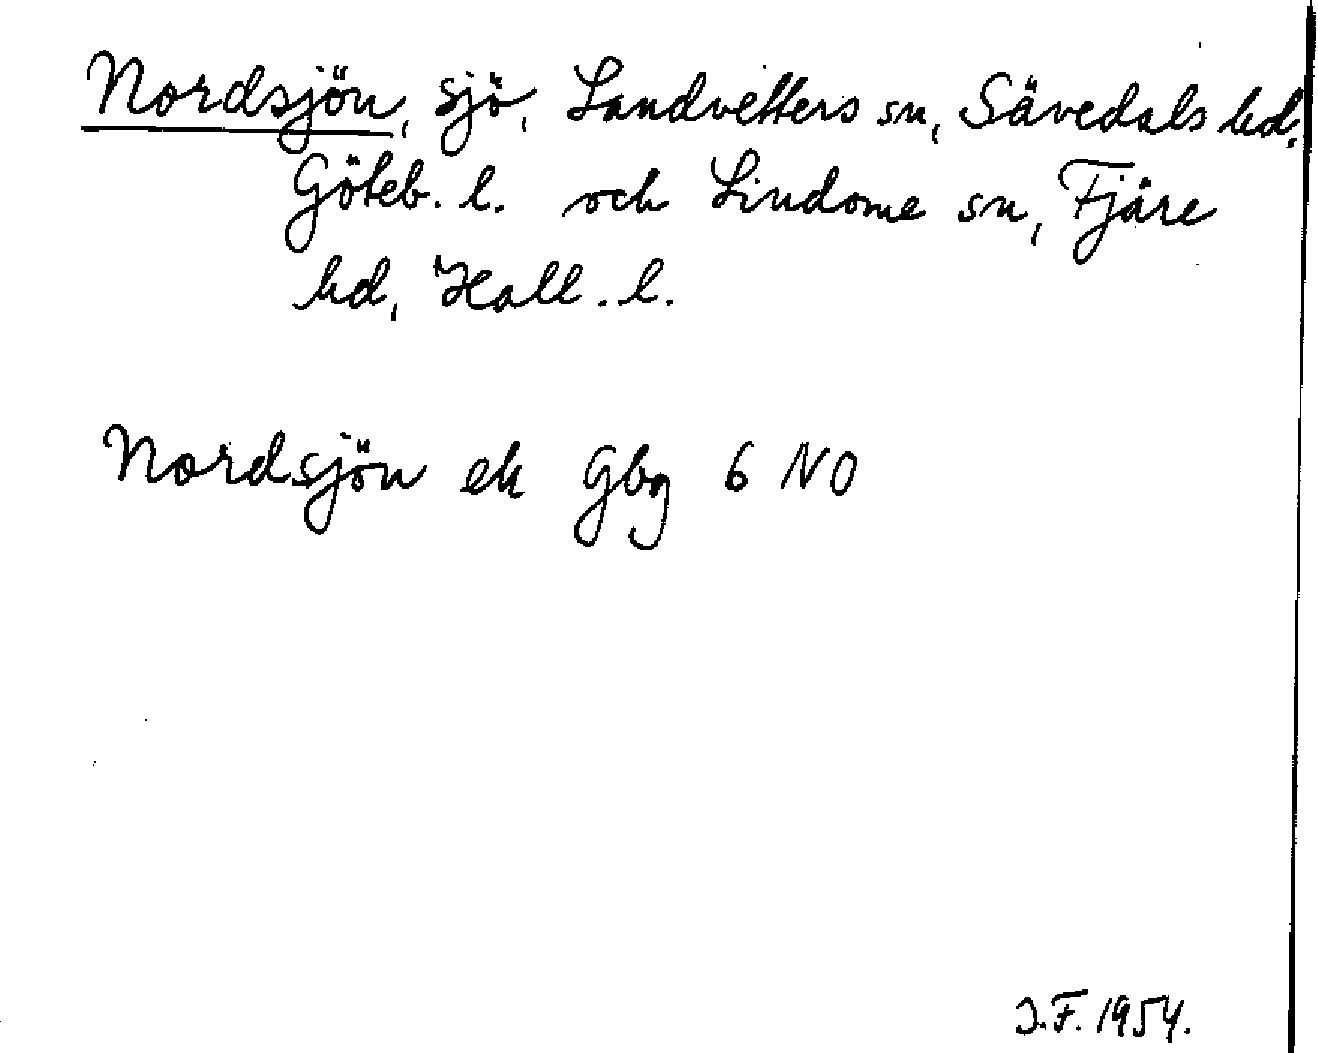 Nordsjön, sjö, Landvetters sn, Sävedals hd,
Göteb. l. och Lindome sn, Fjäre
hd, Hall. l.
Nordsjön ek Gbg 6 NO
J.F. 1954.